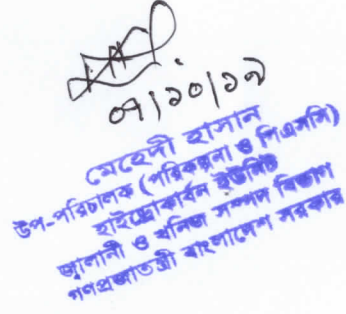 ০৭/১০/১৯
মেহেদী হাসান
উপ-পরিচালক (পরিকল্পনা ও পিএসসি)
হাইড্রোকার্বন ইউনিট
জ্বালানী ও খনিজ সম্পদ বিভাগ
গণপ্রজাতন্ত্রী বাংলাদেশ সরকার